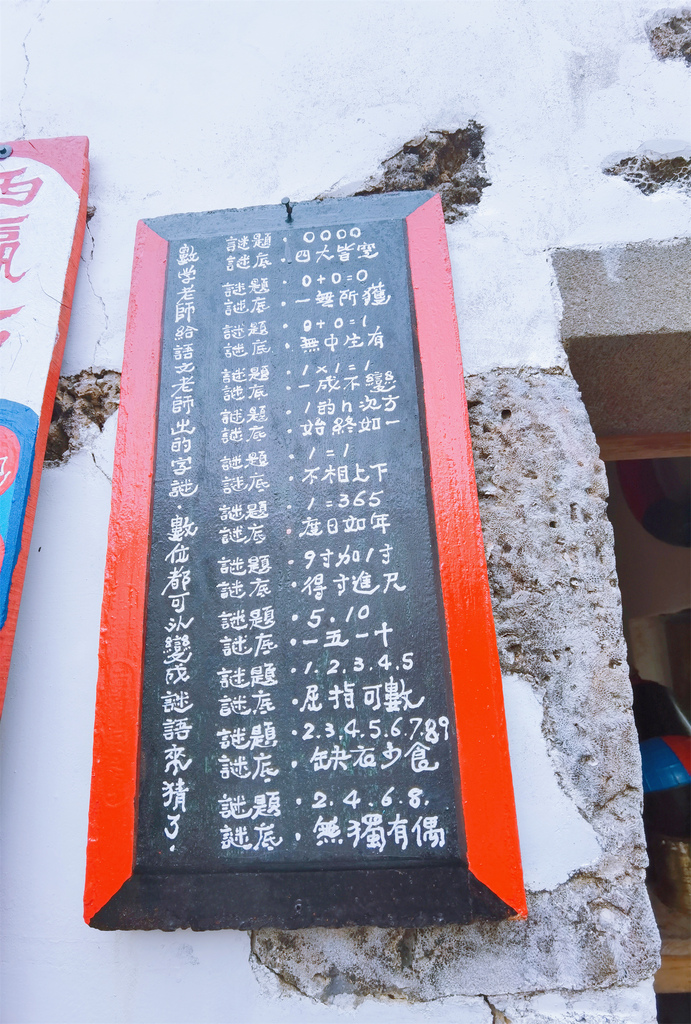 數学老師給語文老師出的字謎.數位都可以變成謎語來猜了.
謎題.0000
謎底.四大皆空
謎題.0+0=0
謎底.一無所獲
謎題.0+0=1
謎底.無中生有
謎題.1×1=1
謎底.一成不變
謎題.1的n次方
謎底.始終如一
謎題.1=1
謎底.不相上下
謎題.1=365
謎底.度日如年
謎題.9寸加1寸
謎底.得寸進尺
謎題.5.10
謎底.一五一十
謎題.1.2.3.4.5
謎底.屈指可數
謎題.2.3.4.5.6.7.89
謎底.缺衣少食
謎題.2.4.6.8.
謎底.無獨有偶